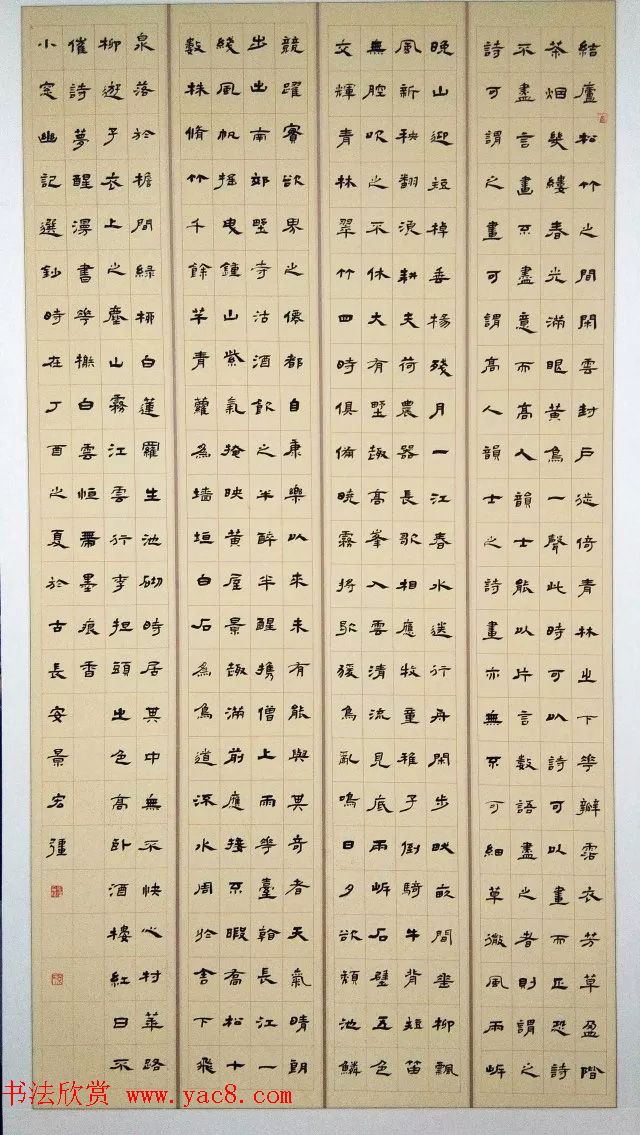 結廬松竹之間閑雲封戶徙倚青林之下華瓣霑衣芳草盈階
茶烟幾縷春光滿眼黃鳥一聲此時可以詩可以畫而正恐詩
不盡言畫不盡意而高人韻士能以片言數語盡之者則謂之
詩可謂之畫可謂高人韻士之詩畫亦無不可細草微風兩岸
晚山迎短棹垂楊殘月一江春水送行舟閑步畎畝間垂柳飄
風新秧翻浪耕夫荷農器長歌相應牧童稚子倒騎牛背短笛
無腔吹之不休大有野趣高峯入雲清流見底兩岸石壁五色
交輝青林翠竹四時俱備曉霧將歇猨鳥亂鳴日夕欲頹池鱗
競躍實欲界之僊都自康樂以來未有能與其奇者天氣晴朗
出出南郊野寺沽酒飲之半醉半醒攜僧上雨華臺看長江一
綫風帆搖曳鐘山紫氣掩映黃屋景趣滿前應接不暇喬松十
數株脩竹千餘竿青蘿為墻垣白石為鳥道流水周於舍下飛
泉落於檐間綠柳白蓮羅生池砌時居其中無不快心村華路
柳遊子衣上之塵山霧江雲行李担頭之色高臥酒樓紅日不
催詩夢醒漫書華榭白雲恒帶墨痕香
小窓幽記選鈔時在丁酉之夏於古長安景宏彊
书法欣赏 www.yac8.com